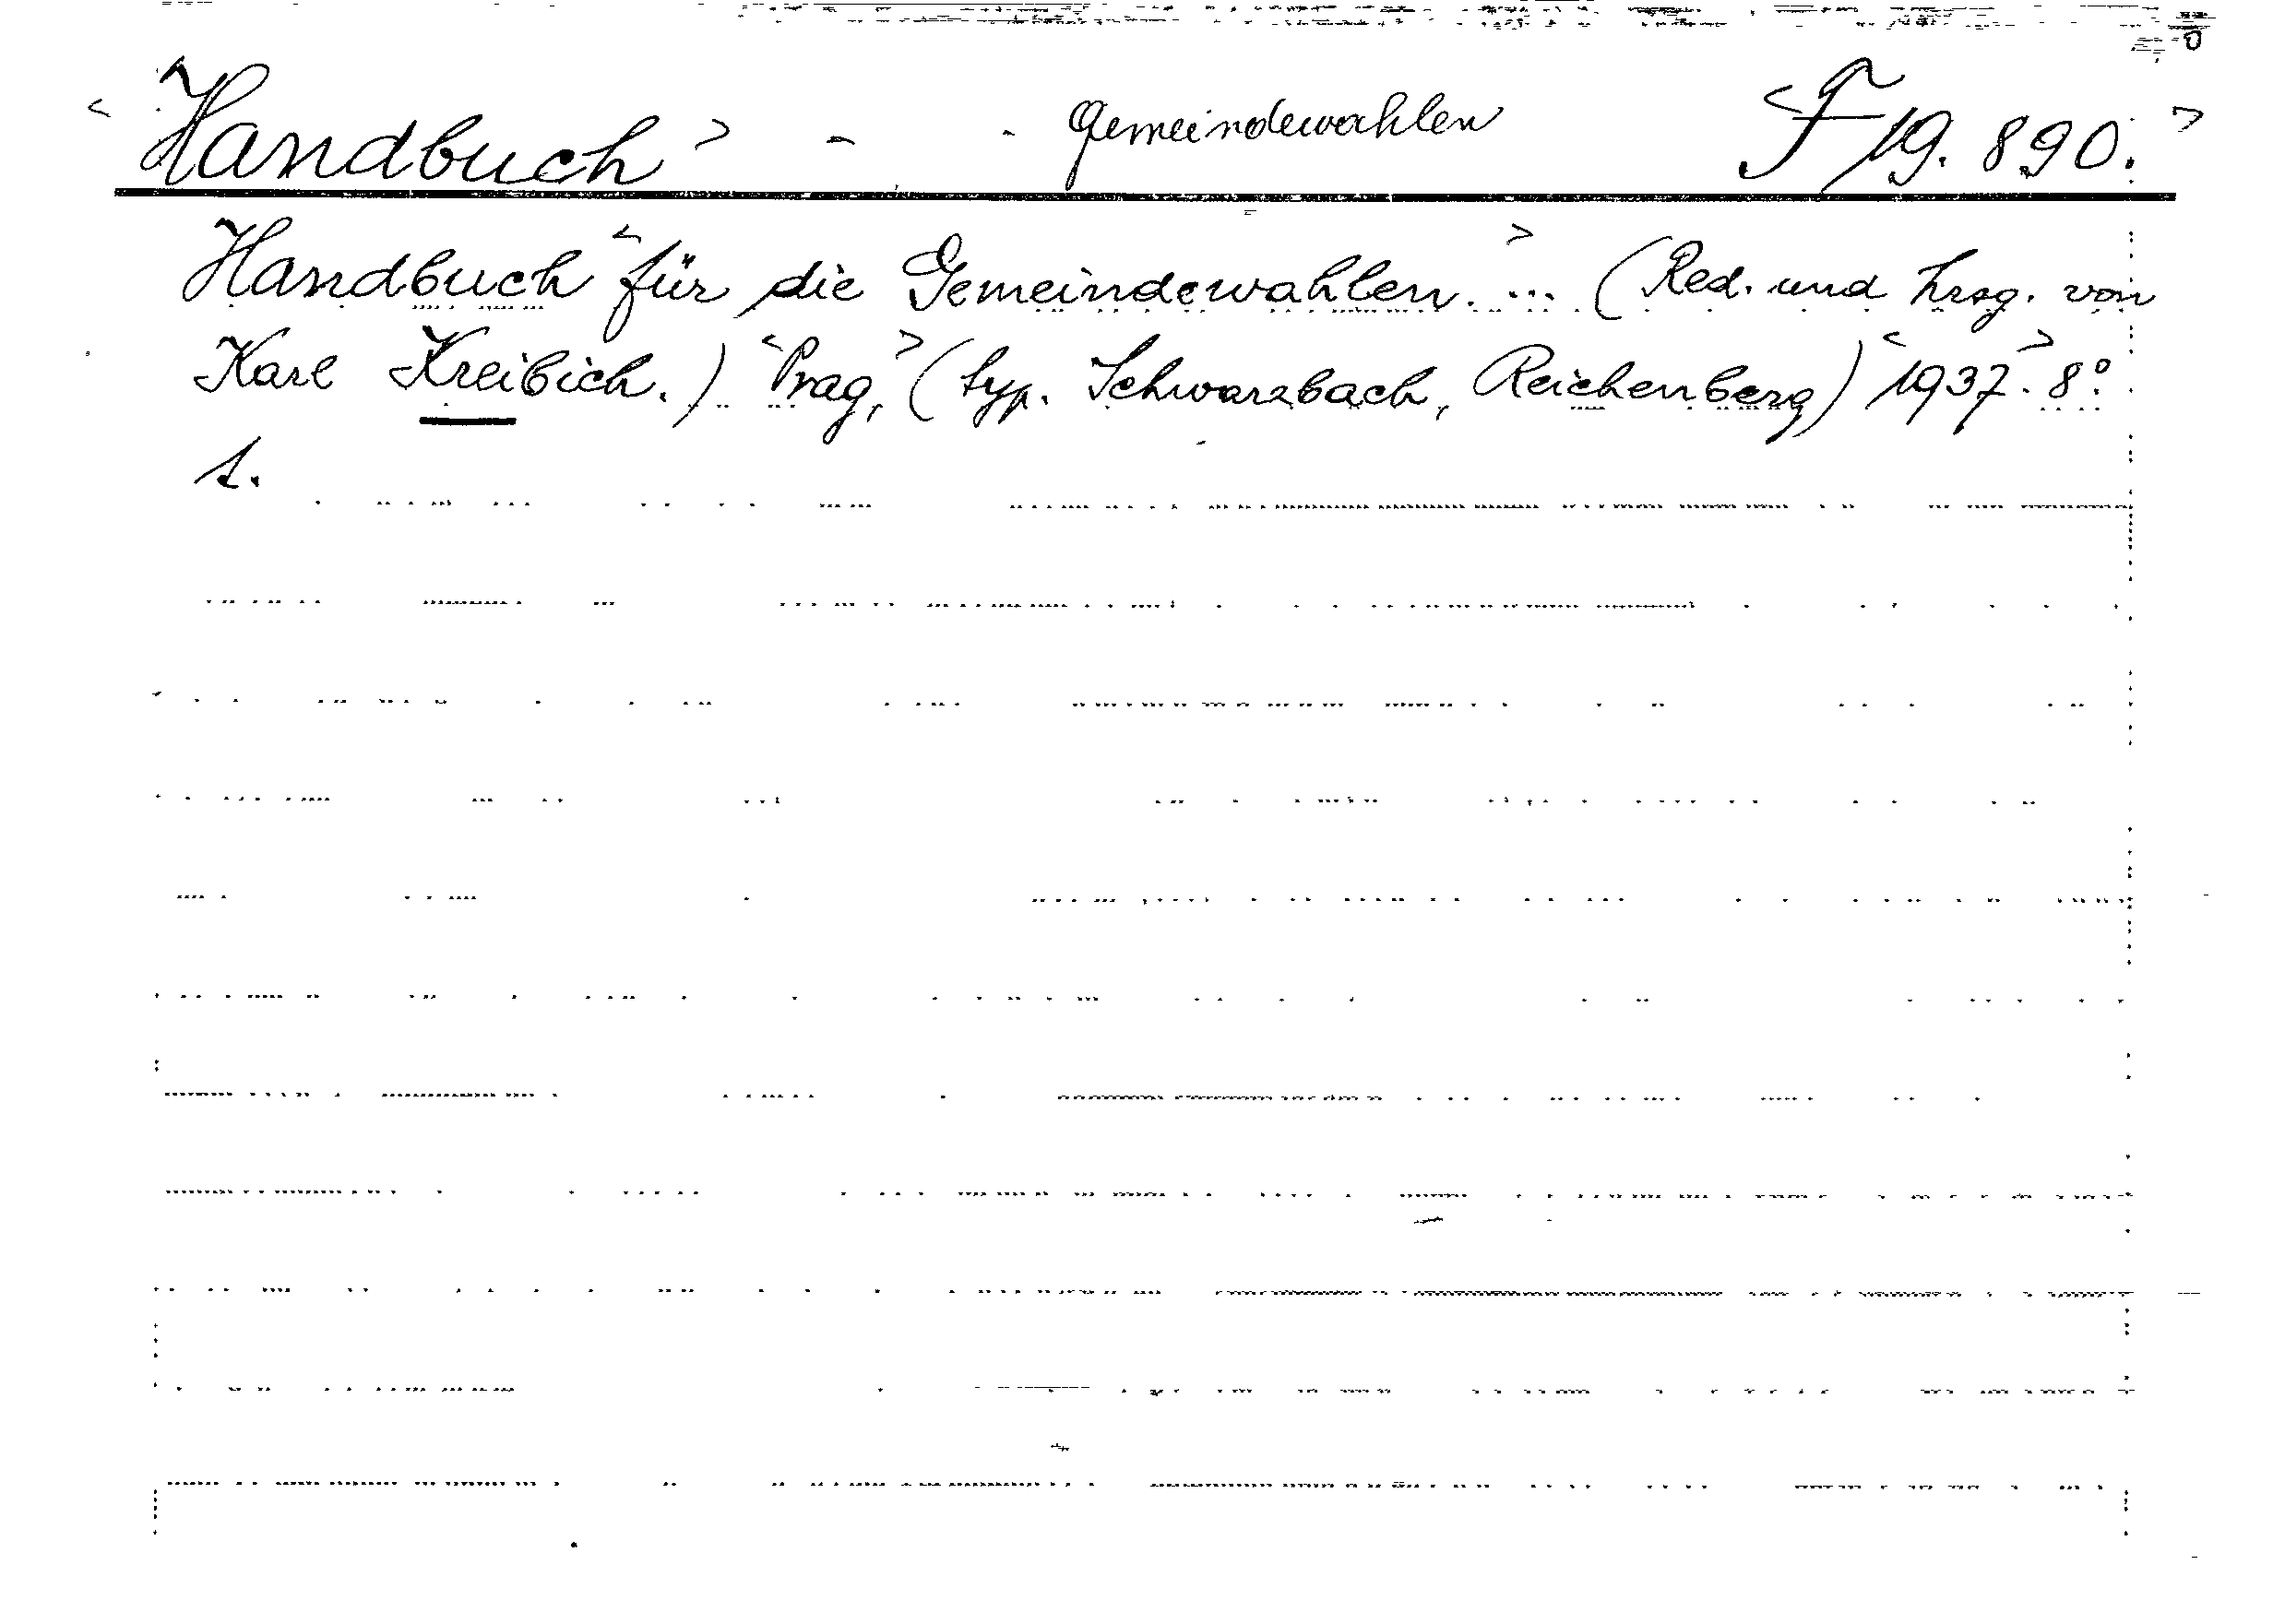 <Handbuch> - - Gemeindewahlen <F 19.890.>
Handbuch <für die Gemeindewahlen.> ... (Red. und hrsg. von
Karl Kreibich.) <Prag,> (typ. Schwarzbach, Reichenberg) <1937>. 8°.
1.